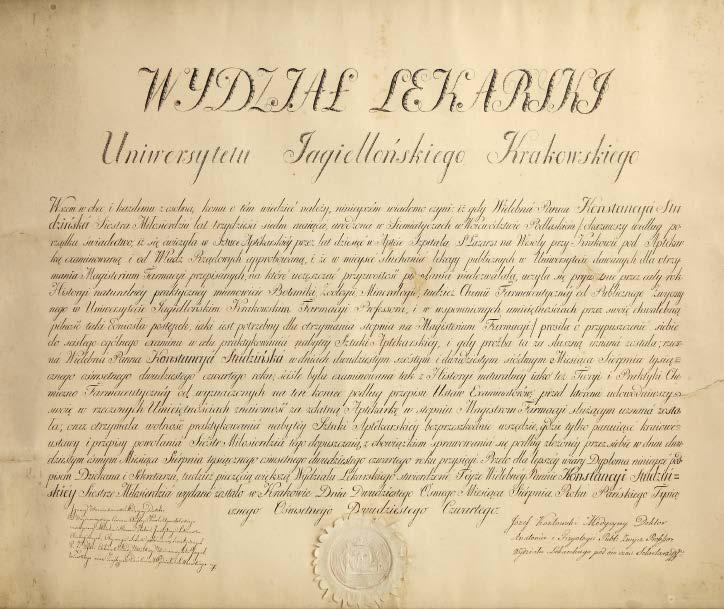 WYDZIAŁ LEKARSKI
Uniwersytetu Jagiellońskiego Krakowskiego
Wszem w obec i każdemu z osobna, komu o tém wiedzieć należy, niniejszém wiadomo czyni: iż gdy Wielebna Panna Konstancyja Stu-
dzińska Siostra Miłosierdzia lat trzydzieści siedm mająca, urodzona w Siematyczach w Województwie Podlaskiém, okazawszy według po-
rządku świadectwo, iż się ćwiczyła w Sztuce Aptekarskiéj przez lat dziesięć w Aptece Szpitala S. Łazarza na Wesoły przy Krakowie pod Apteka-
rką examinowaną i od Władz Rządowych approbowaną, i iż w miejsce słuchania lekcyj publicznych w Uniwersytecie dawanych dla otrzy-
mania Magisterium Farmacyi przepisanych, na które uczęszczać przyzwoitość powołania niedozwalała, uczyła się prywatnie przez cały rok
Historyi naturalnéj praktycznéj mianowicie Botaniki, Zoologii, Mineralogii, tudzież Chemii Farmaceutycznéj od Publicznego Zwyczaj-
nego w Uniwersytecie Jagiellońskim Krakowskim Farmacyi Professora, i w wspomnionych umiejętnościach przez swoię chwalebną
pilność taki odniosła postępek, jaki jest potrzebny dla otrzymania stopnia na Magisterium Farmacyi; prosiła o przypuszczenie siebie
do ścisłego ogólnego examinu w celu praktykowania nabytéj Sztuki Aptekarskiéj, i gdy prośba ta za słuszną uznana została; rzeczo-
na Wielebna Panna Konstancyja Studzińska w dniach dwudziestym szóstym i dwudziestym siódmym Miesiąca Sierpnia tysiącz-
nego ośmsetnego dwudziestego czwartego roku, ściśle była examinowana tak z Historyi naturalnéj jako też Teoryi i Praktyki Che-
miczno Farmaceutycznéj od wyznaczonych na ten koniec podług przepisu Ustaw Examinatorów, przed któremi udowodniwszy
swoię w rzeczonych Umiejętnościach znaiomość za zdatną Aptekarkę w stopniu Magistrom Farmacyi służącym uznaną zosta-
ła; oraz otrzymała wolność praktykowania nabytéj Sztuki Aptekarskiéj bezprzeszkodnie wszędzie, gdzie tylko panujące krajowe
ustawy i przepisy powołania Sióstr Miłosierdzia tego dopuszczają, z obowiązkiem sprawowania się podług złożonéj przez siebie w dniu dwu-
dziestym ósmym Miesiąca Sierpnia tysiącznego ośmsetnego dwudziestego czwartego roku przysięgi. Przeto dla lepszéj wiary Dyploma niniejsze pod-
pisem Dziekana i Sekretarza, tudzież pieczęcią większą Wydziału Lekarskiego stwierdzone Tejże Wielebnéj Pannie Konstancyi Studziń-
skiéy Siostrze Miłosierdzia wydane zostało w Krakowie Dnia Dwudziestego Ósmego Miesiąca Sierpnia Roku Pańskiego Tysią-
cznego Ośmsetnego Dwudziestego Czwartego.
Józef Kozłowski Medycyny Doktor
Anatomii i Fizyologii Publ: Zwycz: Professor
Wydziału Lekarskiego